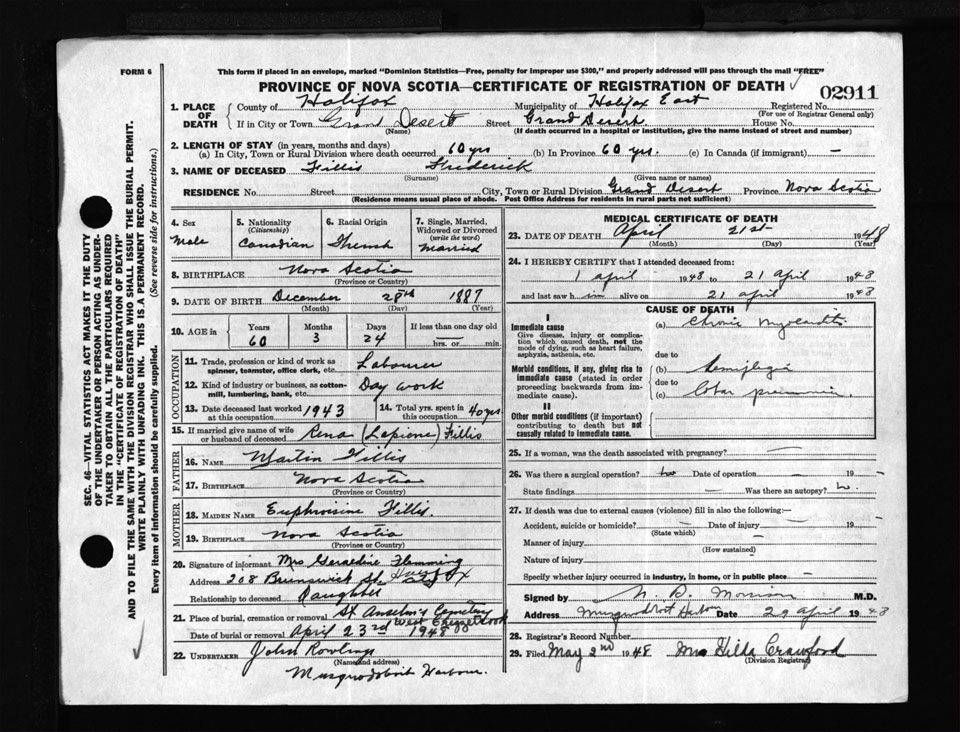 FORM 6
This form if placed in an envelope, marked "Dominion Statistics—Free, penalty for improper use $300," and properly addressed will pass through the mail "FREE"
PROVINCE OF NOVA SCOTIA—CERTIFICATE OF REGISTRATION OF DEATH
02911
1. PLACE OF DEATH
County of Halifax Municipality of Halifax East Registered No.
(For use of Registrar General only)
If in City or Town Grand Desert Street Grand Desert House No.
(Name) (If death occurred in a hospital or institution, give the name instead of street and number)
2. LENGTH OF STAY (in years, months and days)
(a) In City, Town or Rural Division where death occurred 60 yrs (b) In Province 60 yrs. (c) In Canada (if immigrant) —
3. NAME OF DECEASED Fillis Frederick
(Surname) (Given name or names)
RESIDENCE No. Street City, Town or Rural Division Grand Desert Province Nova Scotia
(Residence means usual place of abode. Post Office Address for residents in rural parts not sufficient)
4. Sex
Male
5. Nationality
(Citizenship)
Canadian
6. Racial Origin
French
7. Single, Married, Widowed or Divorced
(write the word)
Married
8. BIRTHPLACE Nova Scotia
(Province or Country)
9. DATE OF BIRTH December 28th 1887
(Month) (Day) (Year)
10. AGE in Years Months Days If less than one day old
60 3 24 hrs. or min.
OCCUPATION
11. Trade, profession or kind of work as spinner, teamster, office clerk, etc. Labourer
12. Kind of industry or business, as cotton-mill, lumbering, bank, etc. Day work
13. Date deceased last worked at this occupation 1943
14. Total yrs. spent in this occupation 40 yrs
15. If married give name of wife or husband of deceased Rena (Lapierre) Fillis
FATHER
16. NAME Martin Fillis
17. BIRTHPLACE Nova Scotia
(Province or Country)
MOTHER
18. MAIDEN NAME Euphrosine Fillis.
19. BIRTHPLACE Nova Scotia
(Province or Country)
20. Signature of informant Mrs Geraldine Flemming
Address 208 Brunswick St. Halifax
Relationship to deceased Daughter
21. Place of burial, cremation or removal St Anselm's Cemetery West Chezzetcook
Date of burial or removal April 23rd 1948
22. UNDERTAKER John Rowlings
(Name and address)
Musquodoboit Harbour.
MEDICAL CERTIFICATE OF DEATH
23. DATE OF DEATH April 21st 1948
(Month) (Day) (Year)
24. I HEREBY CERTIFY that I attended deceased from:
1 April 1948 to 21 April 1948
and last saw him alive on 21 April 1948
CAUSE OF DEATH
I
Immediate cause
Give disease, injury or complication which caused death, not the mode of dying, such as heart failure, asphyxia, asthenia, etc.
(a) Chronic Myocarditis
due to
Morbid conditions, if any, giving rise to immediate cause (stated in order proceeding backwards from immediate cause).
(b) hemiplegia
due to
(c) lobar pneumonia.
II
Other morbid conditions (if important) contributing to death but not causally related to immediate cause.
25. If a woman, was the death associated with pregnancy? —
26. Was there a surgical operation? no Date of operation 19
State findings — Was there an autopsy?
27. If death was due to external causes (violence) fill in also the following:—
Accident, suicide or homicide? — Date of injury — 19
(State which)
Manner of injury
(How sustained)
Nature of injury
Specify whether injury occurred in industry, in home, or in public place —
Signed by N. D. Morrison M.D.
Address Musquodoboit Harbour Date 29 April 1948
28. Registrar's Record Number
29. Filed May 2nd 1948 Mrs Hilda Crawford
(Division Registrar)
SEC. 46—VITAL STATISTICS ACT MAKES IT THE DUTY
OF THE UNDERTAKER OR PERSON ACTING AS UNDER-
TAKER TO OBTAIN ALL THE PARTICULARS REQUIRED
IN THE "CERTIFICATE OF REGISTRATION OF DEATH"
AND TO FILE THE SAME WITH THE DIVISION REGISTRAR WHO SHALL ISSUE THE BURIAL PERMIT.
WRITE PLAINLY WITH UNFADING INK. THIS IS A PERMANENT RECORD.
Every item of Information should be carefully supplied. (See reverse side for instructions.)